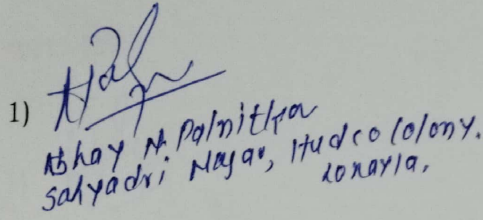 1)
Abhay N. Palnitkar
Sahyadri Nagar, Hudco Colony.
Lonavla,